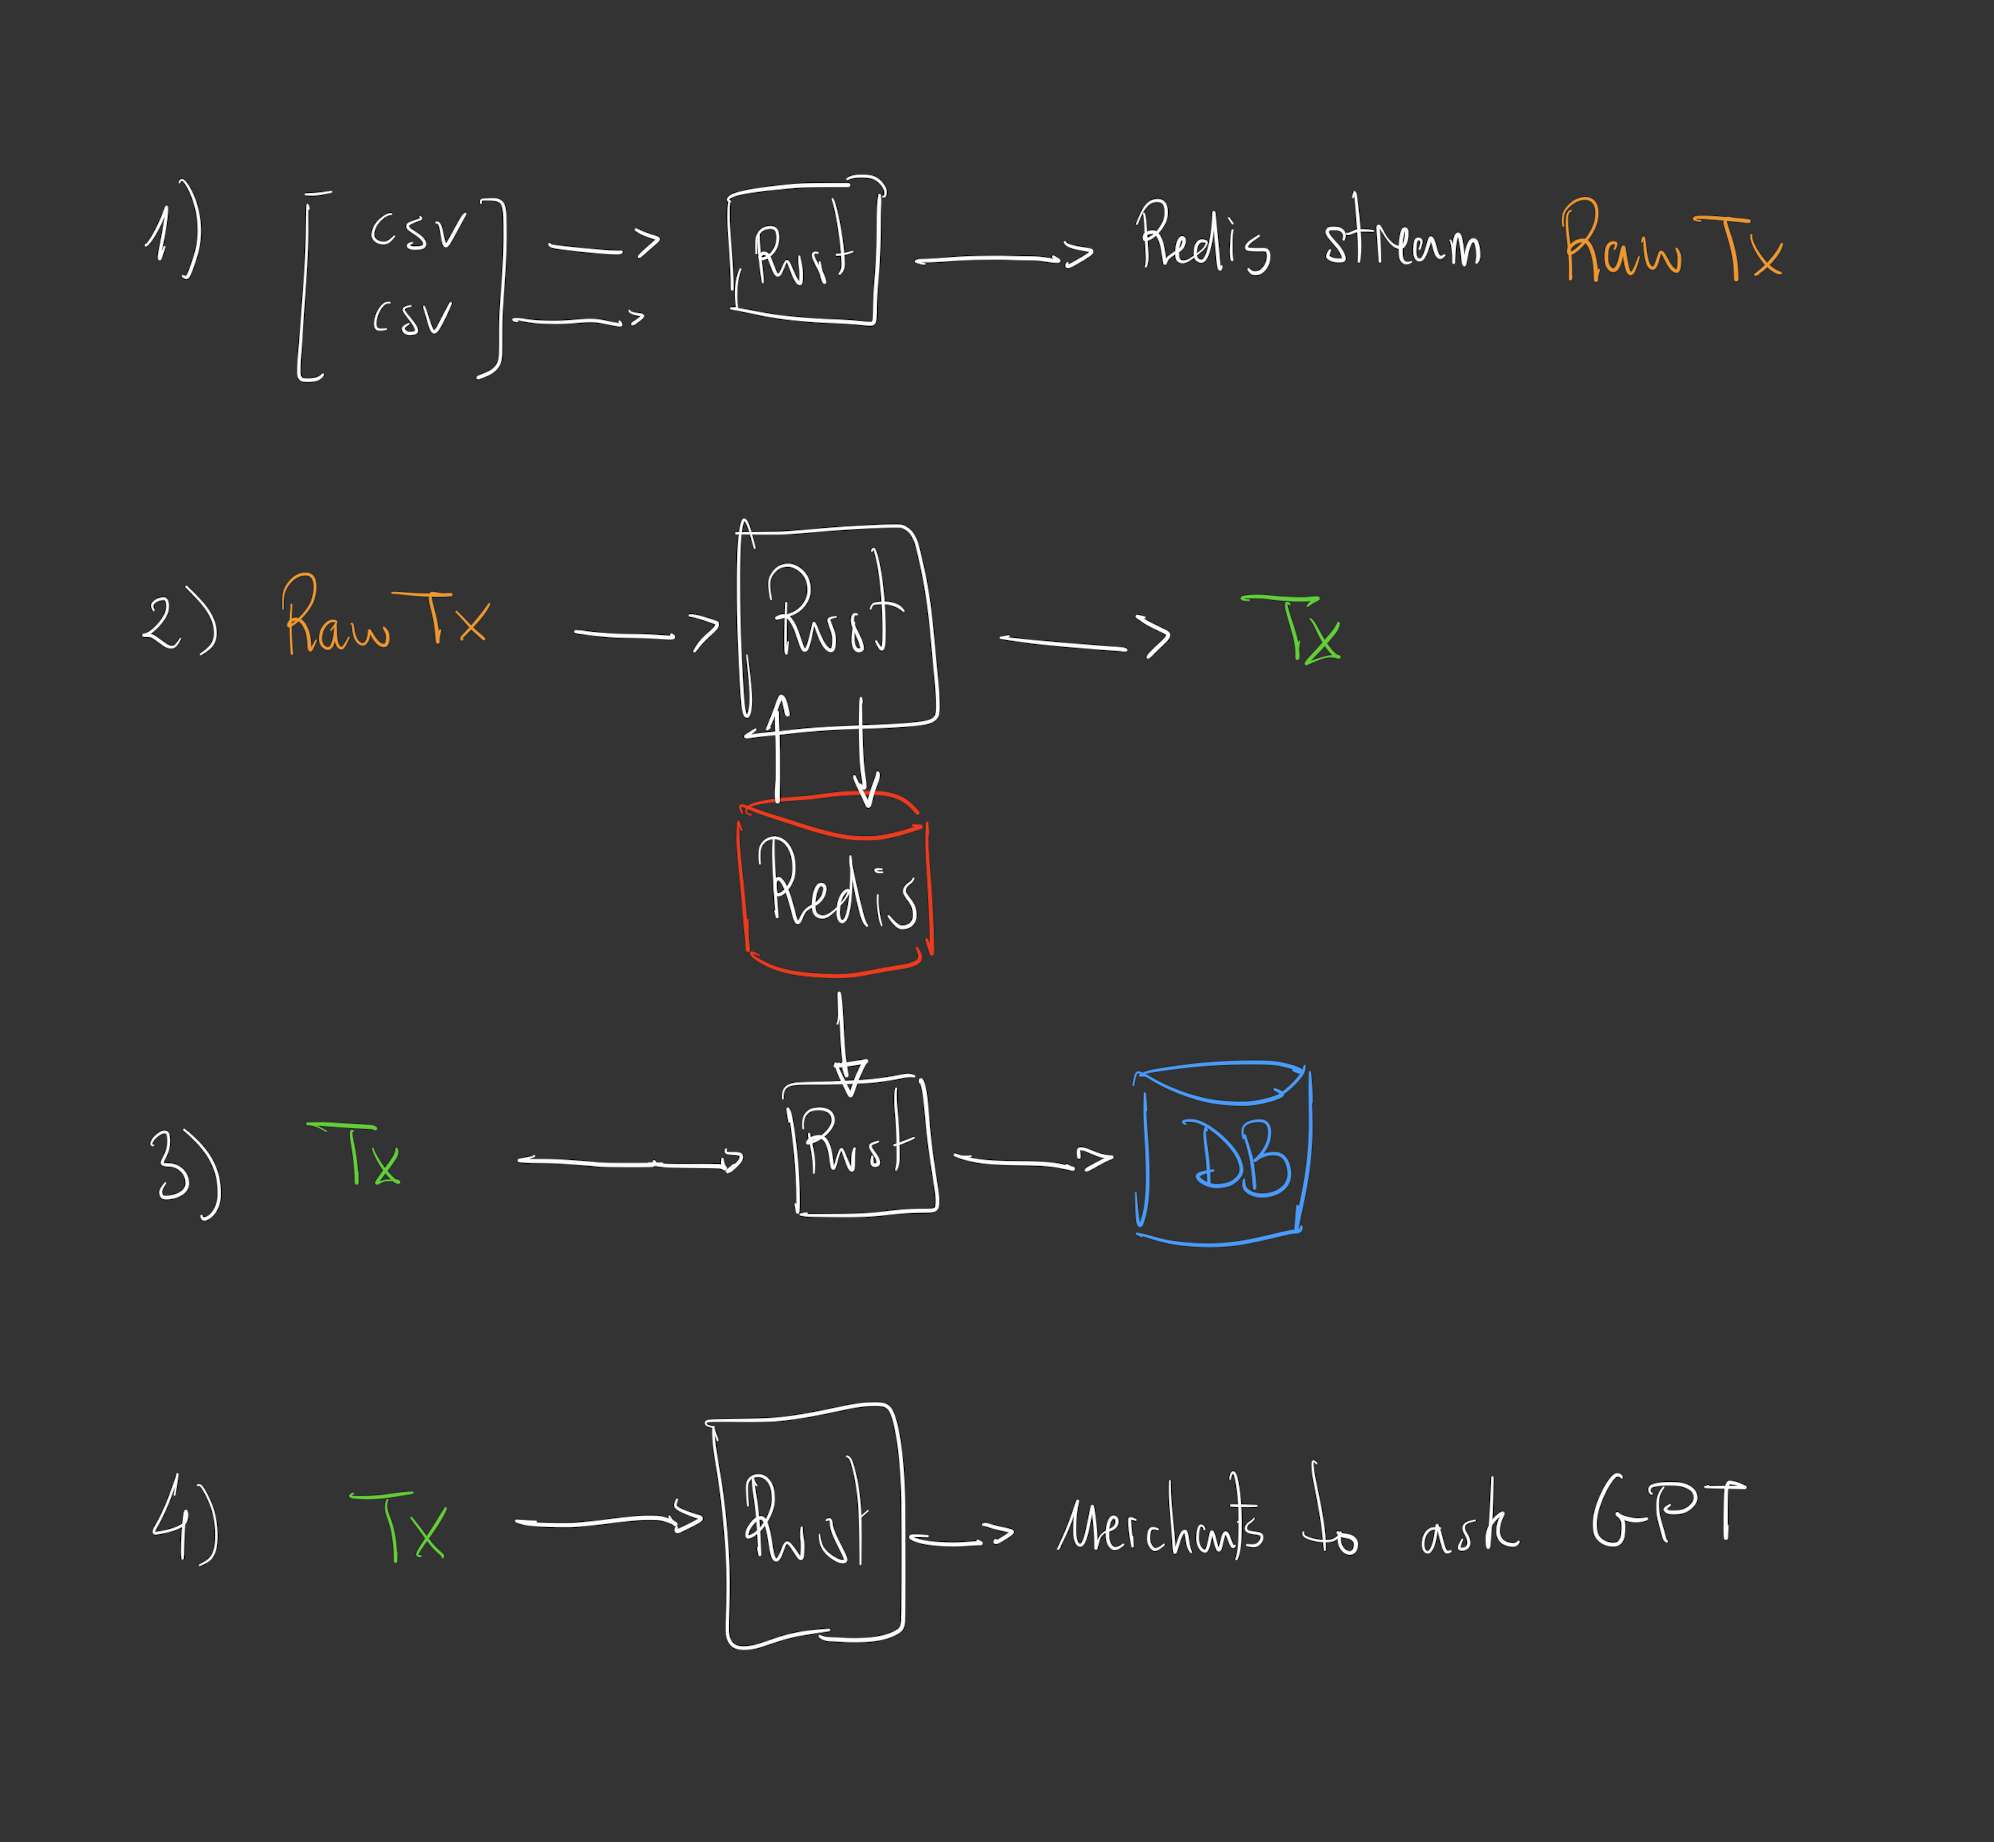 1) csv Rust Redis stream Raw Tx
csv
2) Raw Tx Rust Tx
Redis
3) Tx Rust DB
4) Tx Rust Merchants to ask GPT